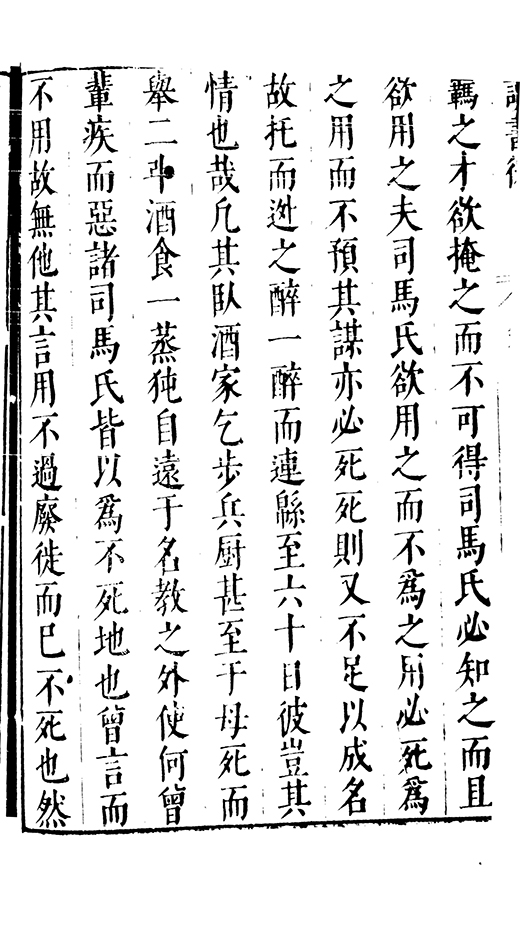 讀書後
羈之才欲掩之而不可得司馬氏必知之而且
欲用之夫司馬氏欲用之而不爲之用必死爲
之用而不預其謀亦必死死則又不足以成名
故托而迯之醉一醉而連緜至六十日彼豈其
情也哉凢其臥酒家乞步兵厨甚至于母死而
舉二斗酒食一蒸㹠自遠于名教之外使何曾
輩疾而惡諸司馬氏皆以爲不死地也曾言而
不用故無他其言用不過廢徙而已不死也然